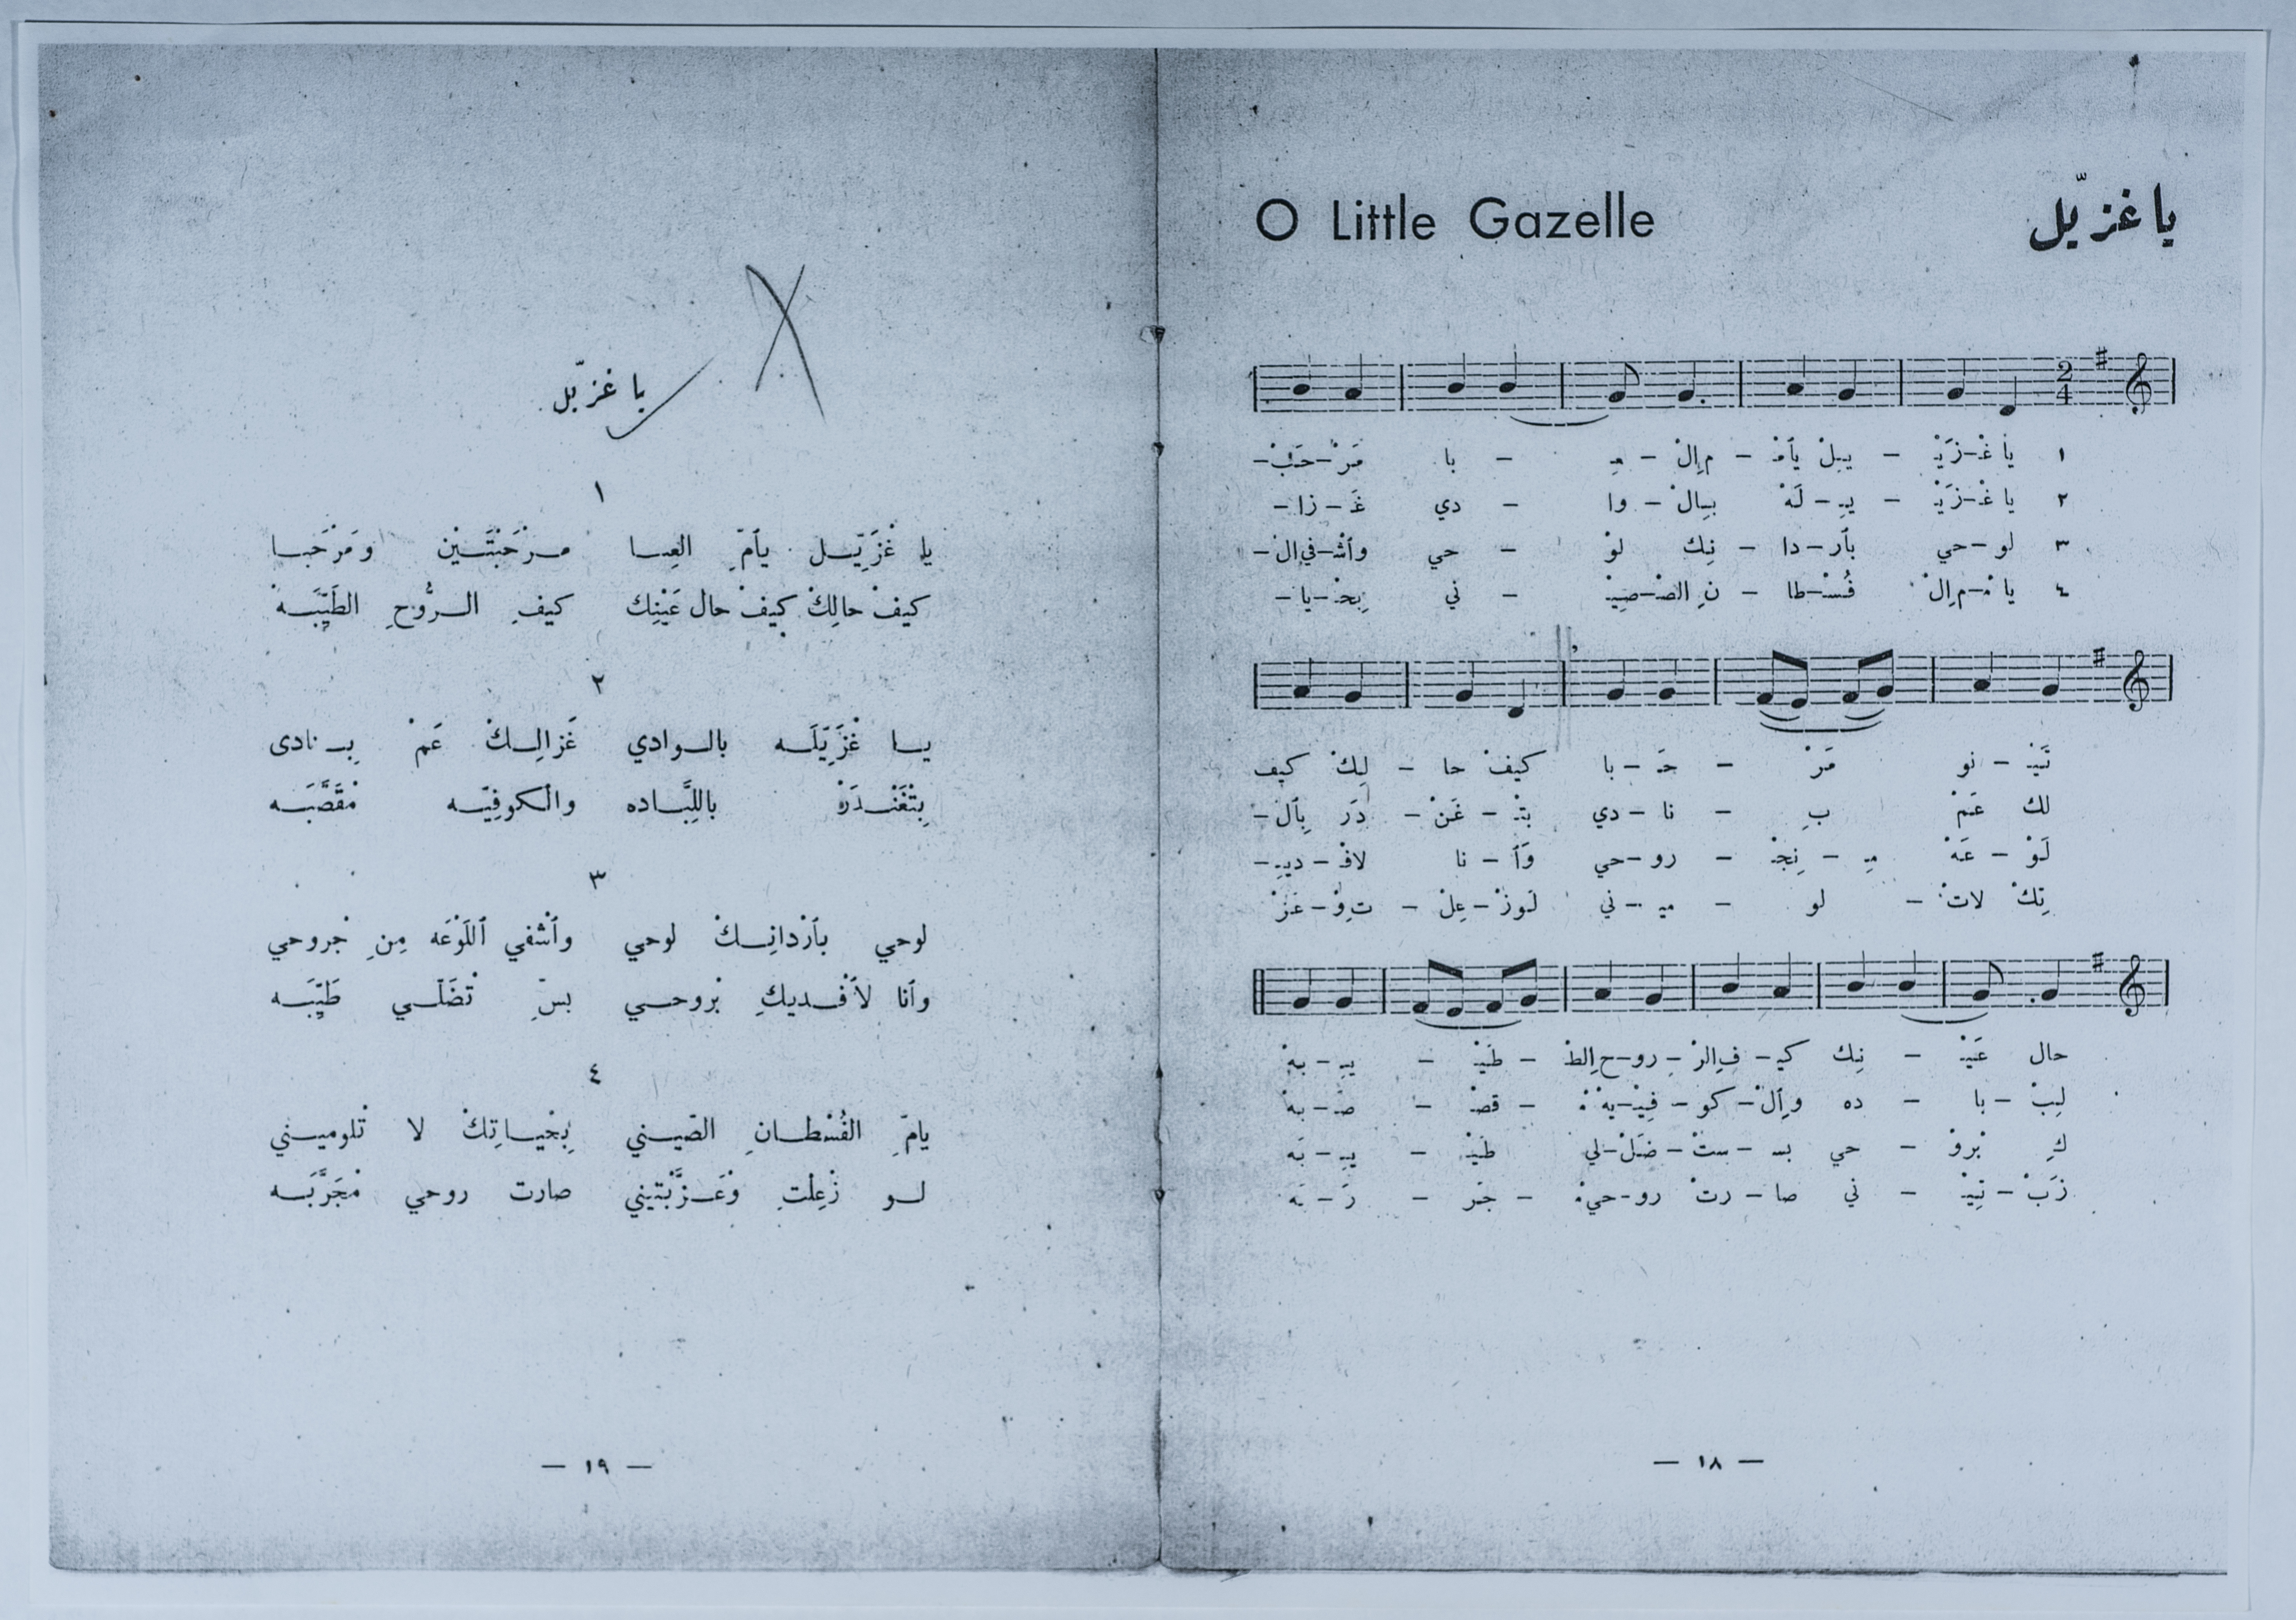 O Little Gazelle
يا غزيّل
١ يا غْـ-ـزَيْـ - ـيـِلْ يأمْـ - مِ اِلْ - عِـ - با - مَرْ-حَبْـ-
٢ يا غْـ-ـزَيْـ - ـيـِ-لَهْ بـِالْ - وا - دي - غَـ-زا-
٣ لو-حي بأر-دا - نِك لوْ - حي - وأشْـ-في اِلْ-
٤ يا مْـ-مِ اِلْ فُسْـ-طا - نِ الصْـ-صِيْـ - ني - بِحْـ-يا-
تَيْـ - نو مَرْ - حَـ - با كيفْ حا - لِكْ كيف
لك عَمْ بِـ - نا - دي بتْـ - غَنْ - دَرَ بِٱلْ-
لَوْ - عَهْ مِـ - نِجْـ - رو-حي وَأ - نا لافْـ-ديـِ-
تِكْ لاتْ - لو - ميـ - ني لَوزْ-عِلْ - تِ وْ-عَزْ
حال عَيْـ - نِك كيـ - فِ الرْ - رو-حِ الطْـ - طَيْـ - ـيـِ-بهْ
لِبْ - با - ده وِٱلْ-كو-فِيْـ-يهْ مْ - قَصْـ - صَـ-بهْ
كِ بْروْ - حي بسـ - سـتْ - ضَلْ-لي طَيْـ - ـيـِ-بَه
زَبْ-تِيْـ - ني صا-رتْ رو-حي مْ - جَر - رَ-بَه
— ١٨ —
يا غزيّل
١
يا غْزَيِّـل يأمّ العِبـا مـرْحَبْتَـيْن ومَرْحَبـا
كيفْ حالِكْ كيفْ حال عَيْنِك كيفِ الـرُّوحِ الطَيِّبَـهْ
٢
يـا غْزَيِّلَـه بالـوادي غَزالِـكْ عَمْ بِـنادى
بِتْغَنْـدَرْ باللِبَّـاده والْكوفِيّـه مْقَصَّبَـه
٣
لوحي بأرْدانِـكْ لوحي وأشْفي ٱللَوْعَه مِنِ جْروحي
وأنا لأفْـديكِ بْروحـي بسّ تْضَلّـي طَيِّبَـه
٤
يامّ الفُسْطـانِ الصّيـني بِحْيـاتِكْ لا تْلوميـني
لـو زْعِلْتِ وْعَـزَّبْتيني صارت روحي مْجَرَّبَـه
— ١٩ —